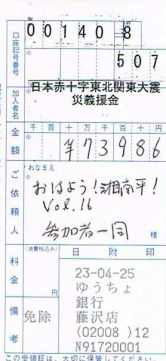 口座記号番号
00140 8
507
加入者名
日本赤十字東北関東大震
災義援金
金額
千 百 十 万 千 百 十 円
¥73986
ご依頼人
おなまえ
おはよう!湘南平!
Vol.16
参加者一同
様
料金
(消費税込み)
免除
日 附 印
23-04-25
ゆうちょ
銀行
藤沢店
(02008)12
N91720001
備考
この受領証は、大切に保管してください。